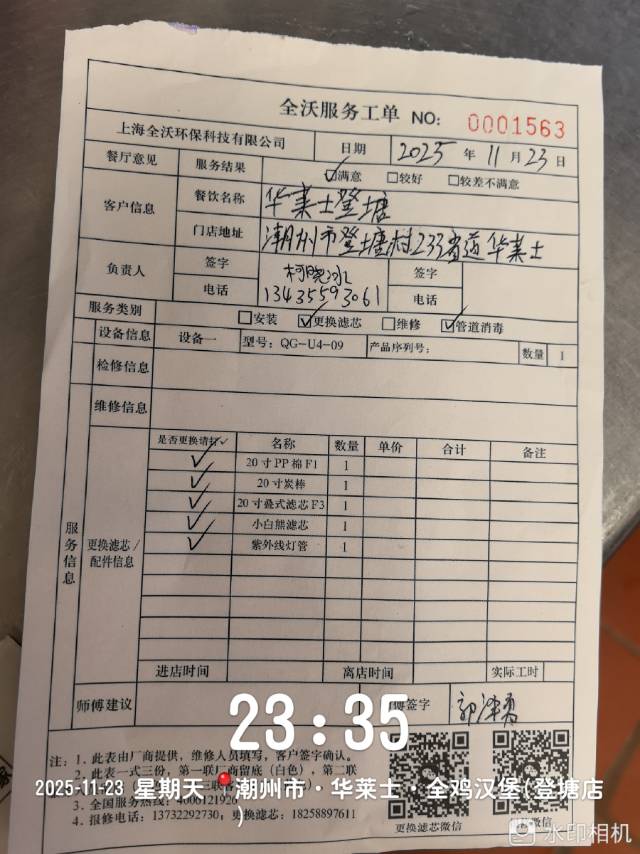 全沃服务工单 NO: 0001563
上海全沃环保科技有限公司 日期 2025 年 11 月 23 日
餐厅意见 服务结果 ☑满意 □较好 □较差不满意
客户信息 餐饮名称 华莱士登塘
门店地址 潮州市登塘村233省道华莱士
负责人 签字 柯晓冰 签字
电话 13435593061 电话
服务类别 □安装 ☑更换滤芯 □维修 ☑管道消毒
设备信息 设备一 型号：QG-U4-09 产品序列号： 数量 1
检修信息
维修信息
服务信息
更换滤芯/配件信息
是否更换请打✓ 名称 数量 单价 合计 备注
✓ 20寸PP棉F1 1
✓ 20寸炭棒 1
✓ 20寸叠式滤芯F3 1
✓ 小白熊滤芯 1
✓ 紫外线灯管 1
进店时间 离店时间 实际工时
师傅建议 签字
23:35
注：1. 此表由厂商提供，维修人员填写，客户签字确认。
2. 此表一式三份，第一联厂商留底（白色），第二联
2025-11-23 星期天 潮州市·华莱士·全鸡汉堡(登塘店)
3. 全国服务热线：4006121926
4. 报修电话：13732292730；18258897611
更换滤芯微信 微信
水印相机